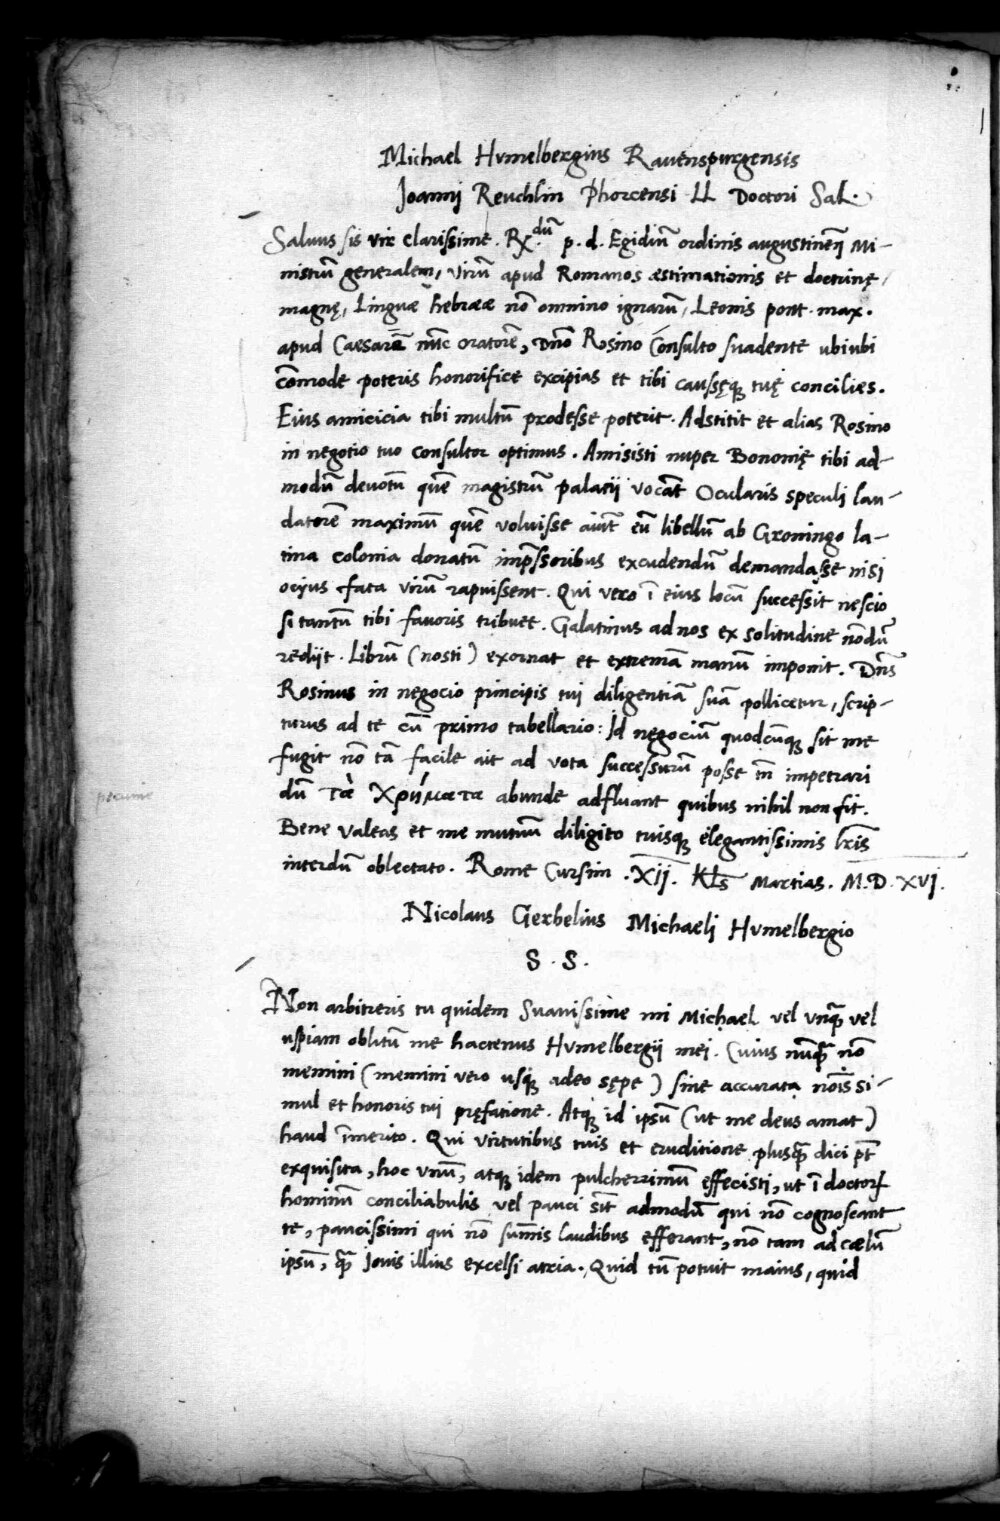 Michael Hvmelbergius Ravenspurgensis
Joannj Reuchlin Phorcensi LL Doctori Sal.
Saluus sis vir clarissime. Rx.dũ p. d. Egidiũ ordinis augustinen̄ Mi-
nistrũ generalem, virũ apud Romanos æstimationis et doctrinę
magnę, Linguæ hebrææ nõ omnino ignarũ, Leonis pont. max.
apud Caesarẽ nũc oratorẽ, Dño Rosino Consulto suadente ubiubi
cõmode poteris honorifice excipias et tibi caussęq; tuę concilies.
Eius amicicia tibi multũ prodesse poterit. Adstitit et alias Rosino
in negotio tuo consultor optimus. Amisisti nuper Bononię tibi ad-
modũ deuotũ quẽ magistrũ palatij vocãt Ocularis speculi lau-
datorẽ maximũ quẽ voluisse aiũt eũ libellũ ab Groningo la-
tina colonia donatũ imp̃ssoribus excudendũ demandasse nisj
ocyus fata virũ rapuissent. Qui vero ĩ eius locũ successit nescio
si tantũ tibi fauoris tribuet. Galatinus ad nos ex solitudine nõdũ
redijt. Librũ (nosti) exornat et extremã manũ imponit. Dñs
Rosinus in negocio principis tui diligentiã suã pollicetur, scrip-
turus ad te cũ primo tabellario: Id negociũ quodcũq; sit me
fugit nõ tã facile ait ad vota successurũ posse tñ impetrari
dũ τὰ χρήματα abunde adfluant quibus nihil non fit.
Bene valeas et me mutuũ diligito tuisq; elegantissimis lr̃is
interdũ oblectato. Rome Cursim .XIJ. Kls̃ Martias. M.D.XVJ.
Nicolaus Gerbelius Michaelj Hvmelbergio
S. S.
Non arbitreris tu quidem Suauissime mi Michael vel vnq̃ vel
uspiam oblitũ me hactenus Hvmelbergij mej. Cuius nũq̃ nõ
memini (memini vero usq; adeo sępe) sine accurata nõis si-
mul et honoris tui pręfatione. Atq; id ipsũ (ut me deus amat)
haud ĩmerito. Qui virtutibus tuis et eruditione plusq̃ dici põt
exquisita, hoc vnũ, atq; idem pulcherrimũ effecisti, ut ĩ doctoꝝ
hominũ conciliabulis vel pauci sĩt admodũ qui nõ cognoscant
te, paucissimi qui nõ sum̃is laudibus efferant, nõ tam ad cælũ
ipsũ, q̃ Jouis illius excelsi atria. Quid tũ potuit maius, quid